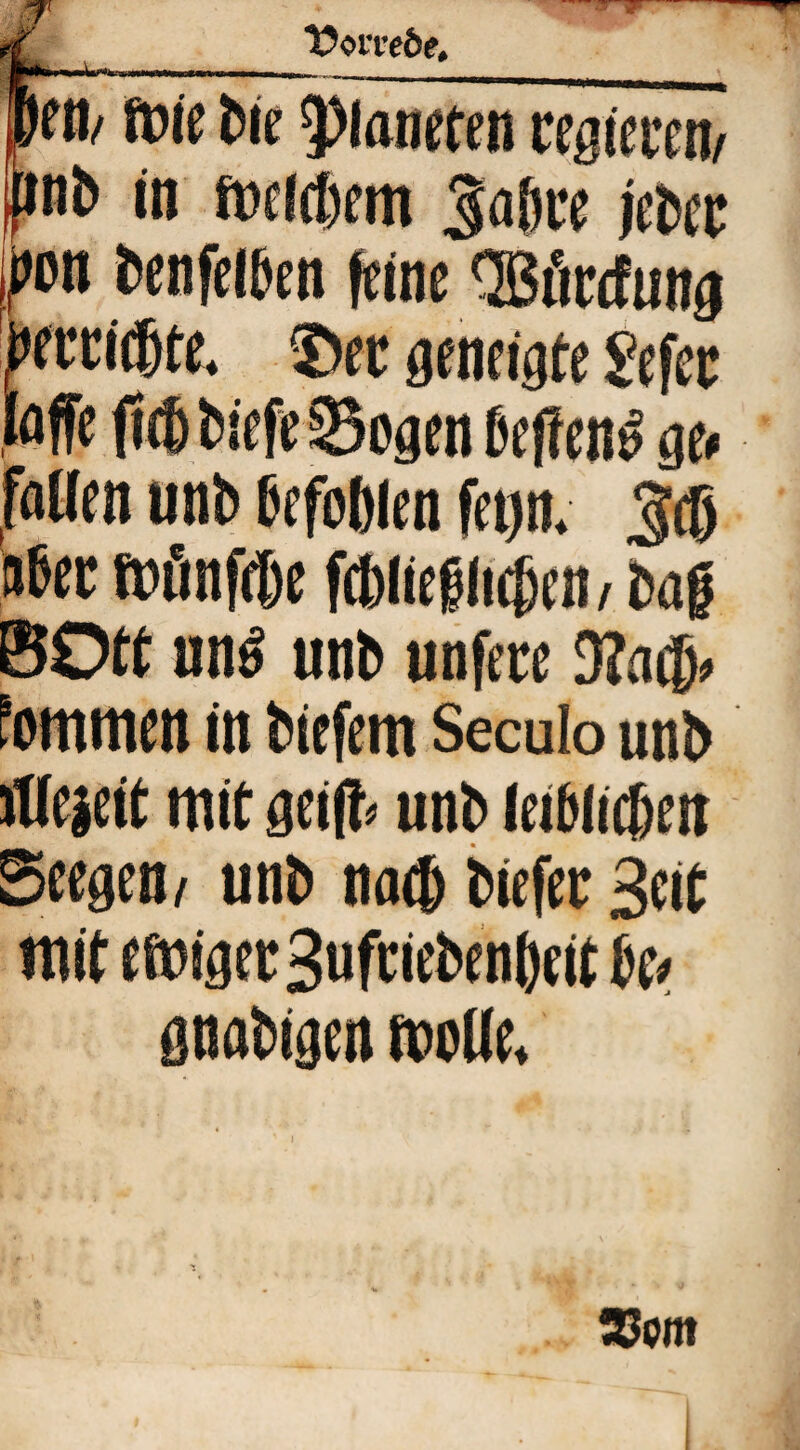 Vorrede.
den/ wie die Planeten regieren/
und in welchem Jahre jeder
von denselben seine Würckung
verrichte. Der geneigte Leser
lasse sich diese Bogen bestens ge-
fallen und befohlen seyn. Ich
aber wünsche schließlichen/ daß
GOtt uns und unsere Nach-
kommen in diesem Seculo und
allezeit mit geist- und leiblichen
Seegen/ und nach dieser Zeit
mit ewiger Zufriedenheit be-
gnadigen wolle.
Vom